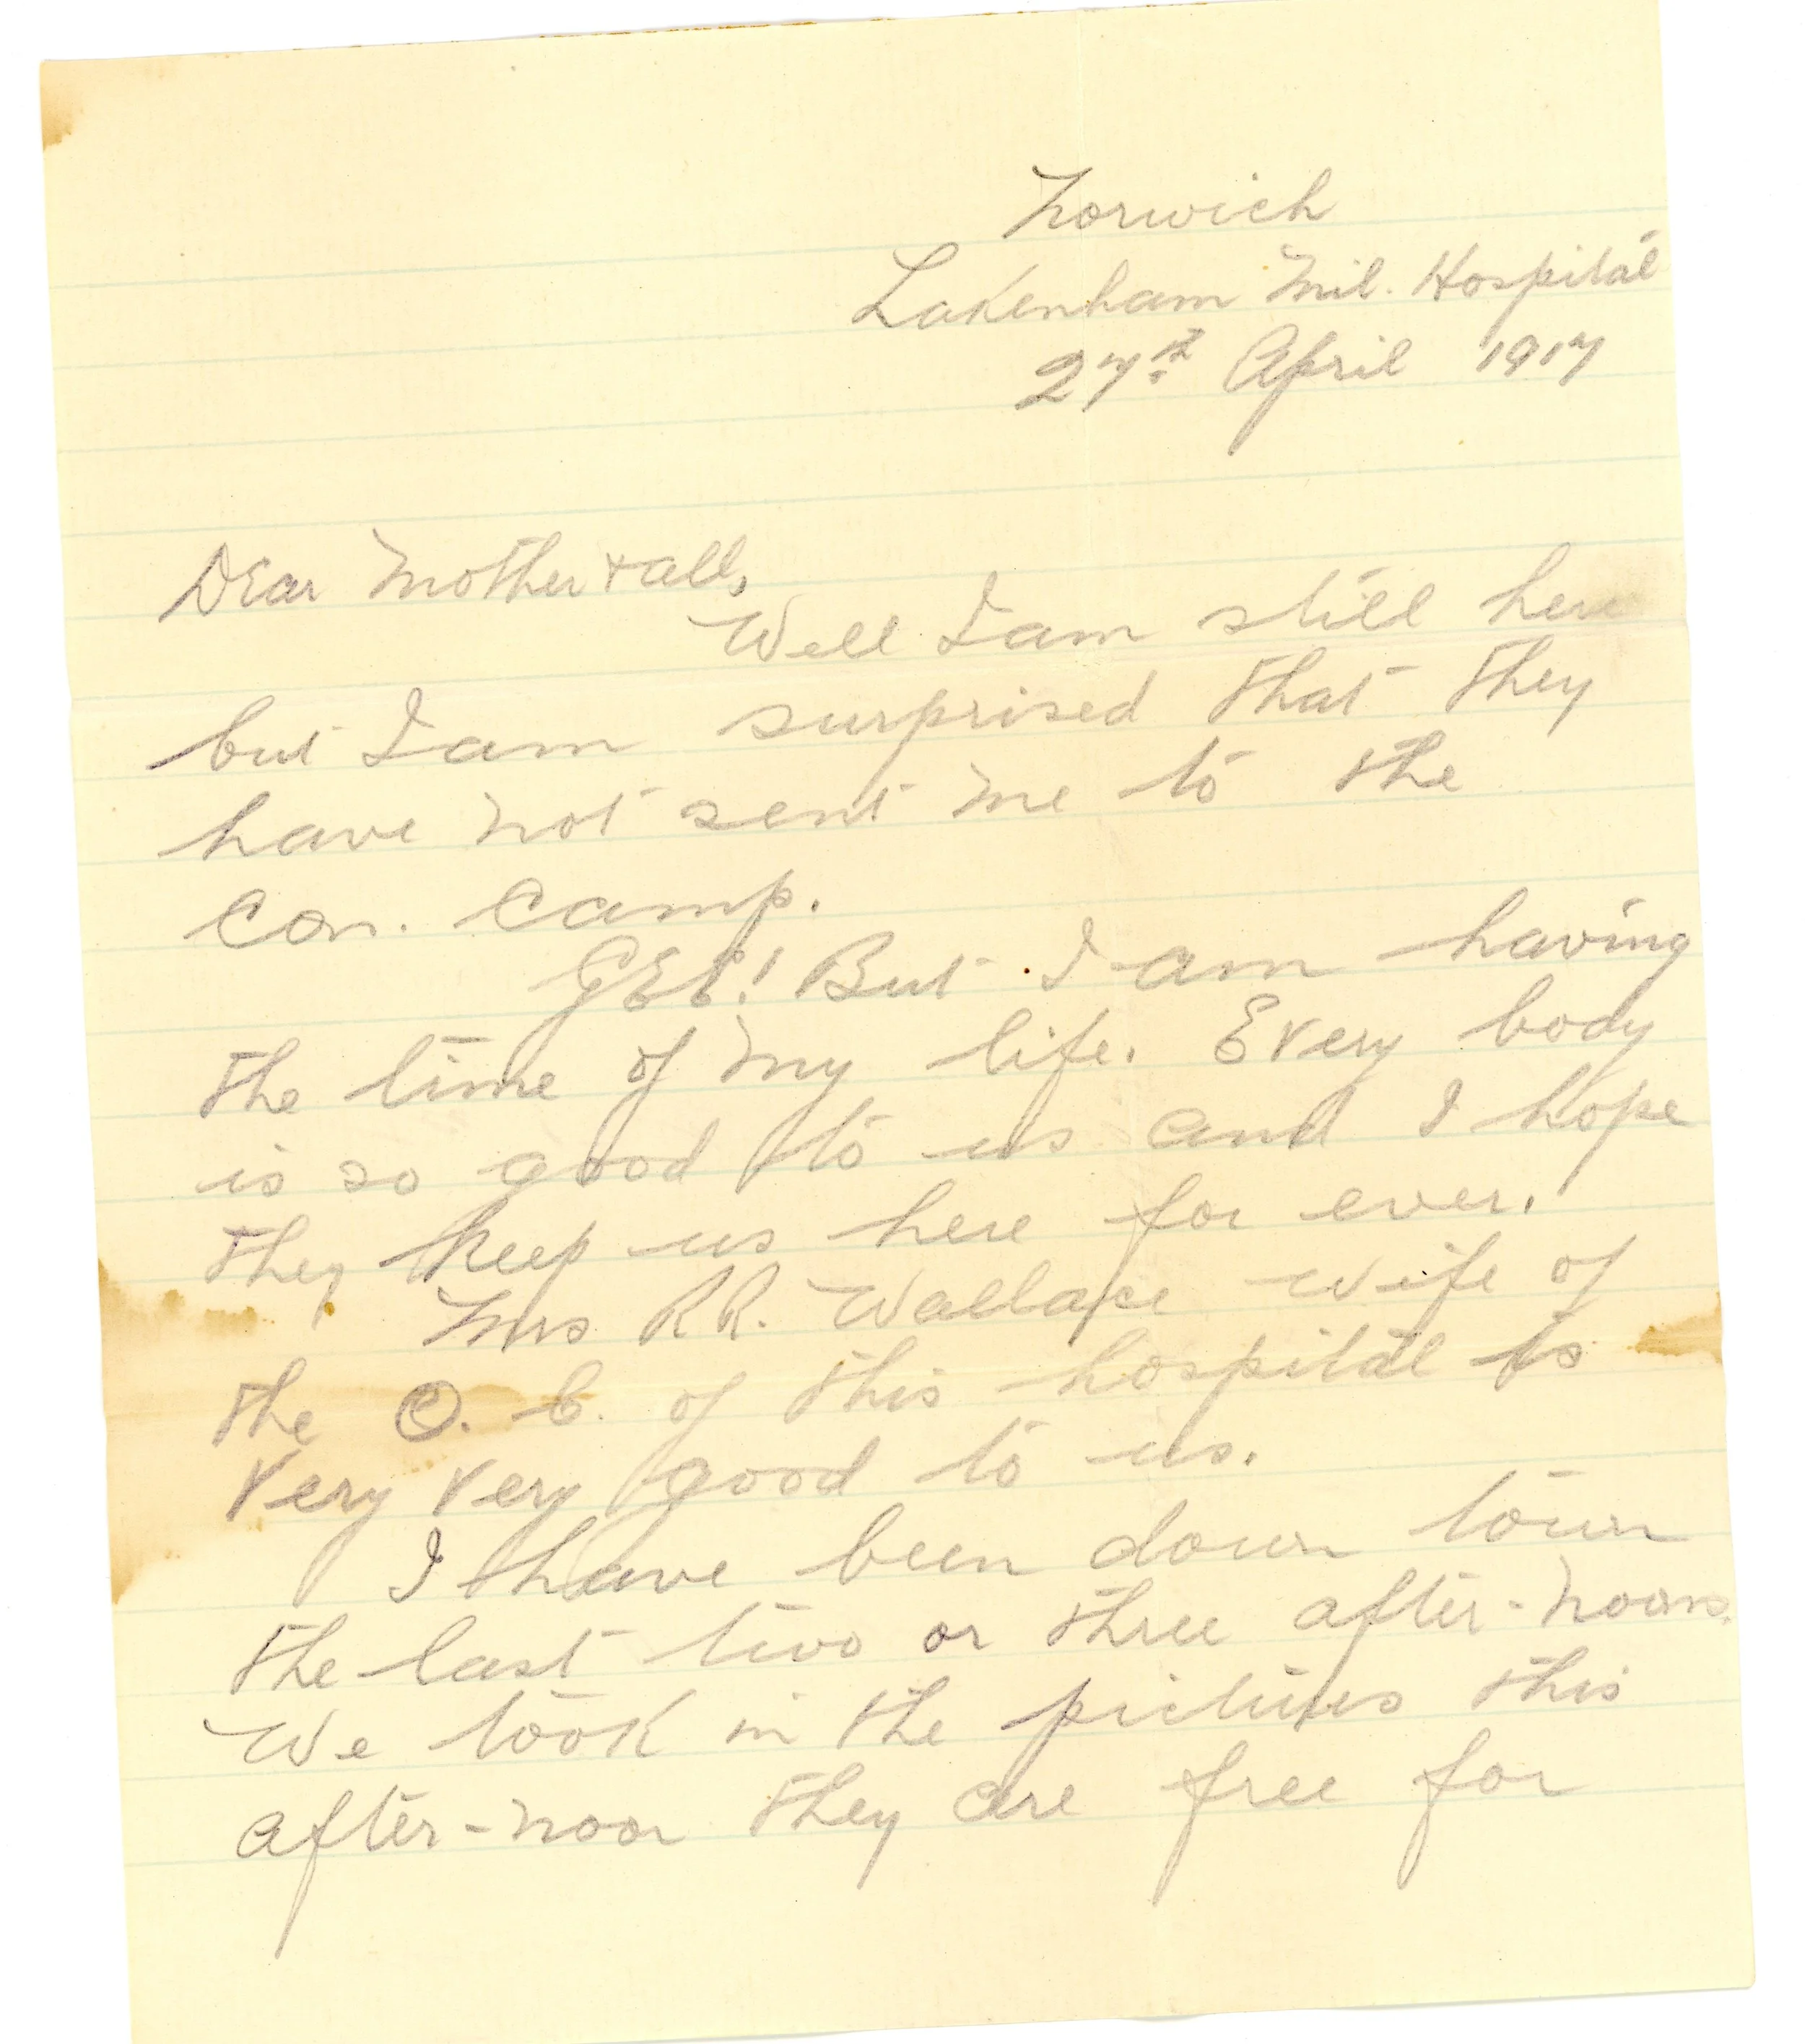 Norwich
Lakenham Mil. Hospital
27th April 1917
Dear Mother & all,
Well I am still here
but I am surprised that they
have not sent me to the
Con. Camp.
GEE! But I am having
the time of my life. Every body
is so good to us and I hope
they keep us here for ever.
Mrs R.R. Wallace wife of
the O.C. of this hospital is
very very good to us.
I have been down town
the last two or three after-noons.
We took in the pictures this
after-noon they are free for